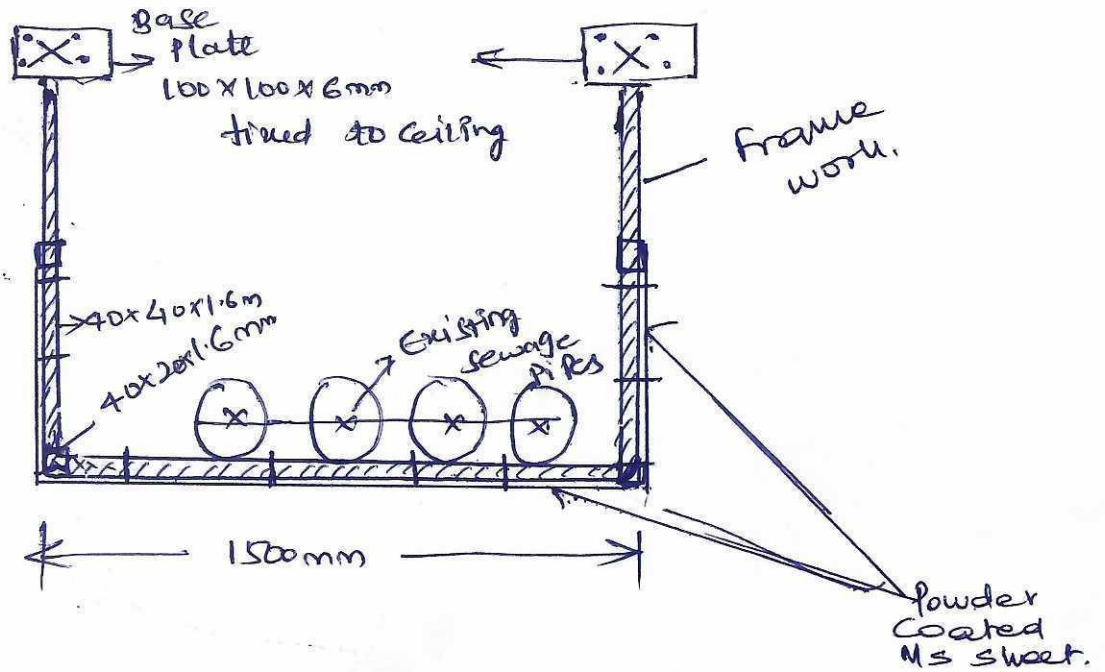 Base
Plate
100×100×6mm
fixed to ceiling
Frame
work.
40×40×1.6m
40×20×1.6mm
Existing
sewage
pipes
1500mm
Powder
Coated
Ms sheet.